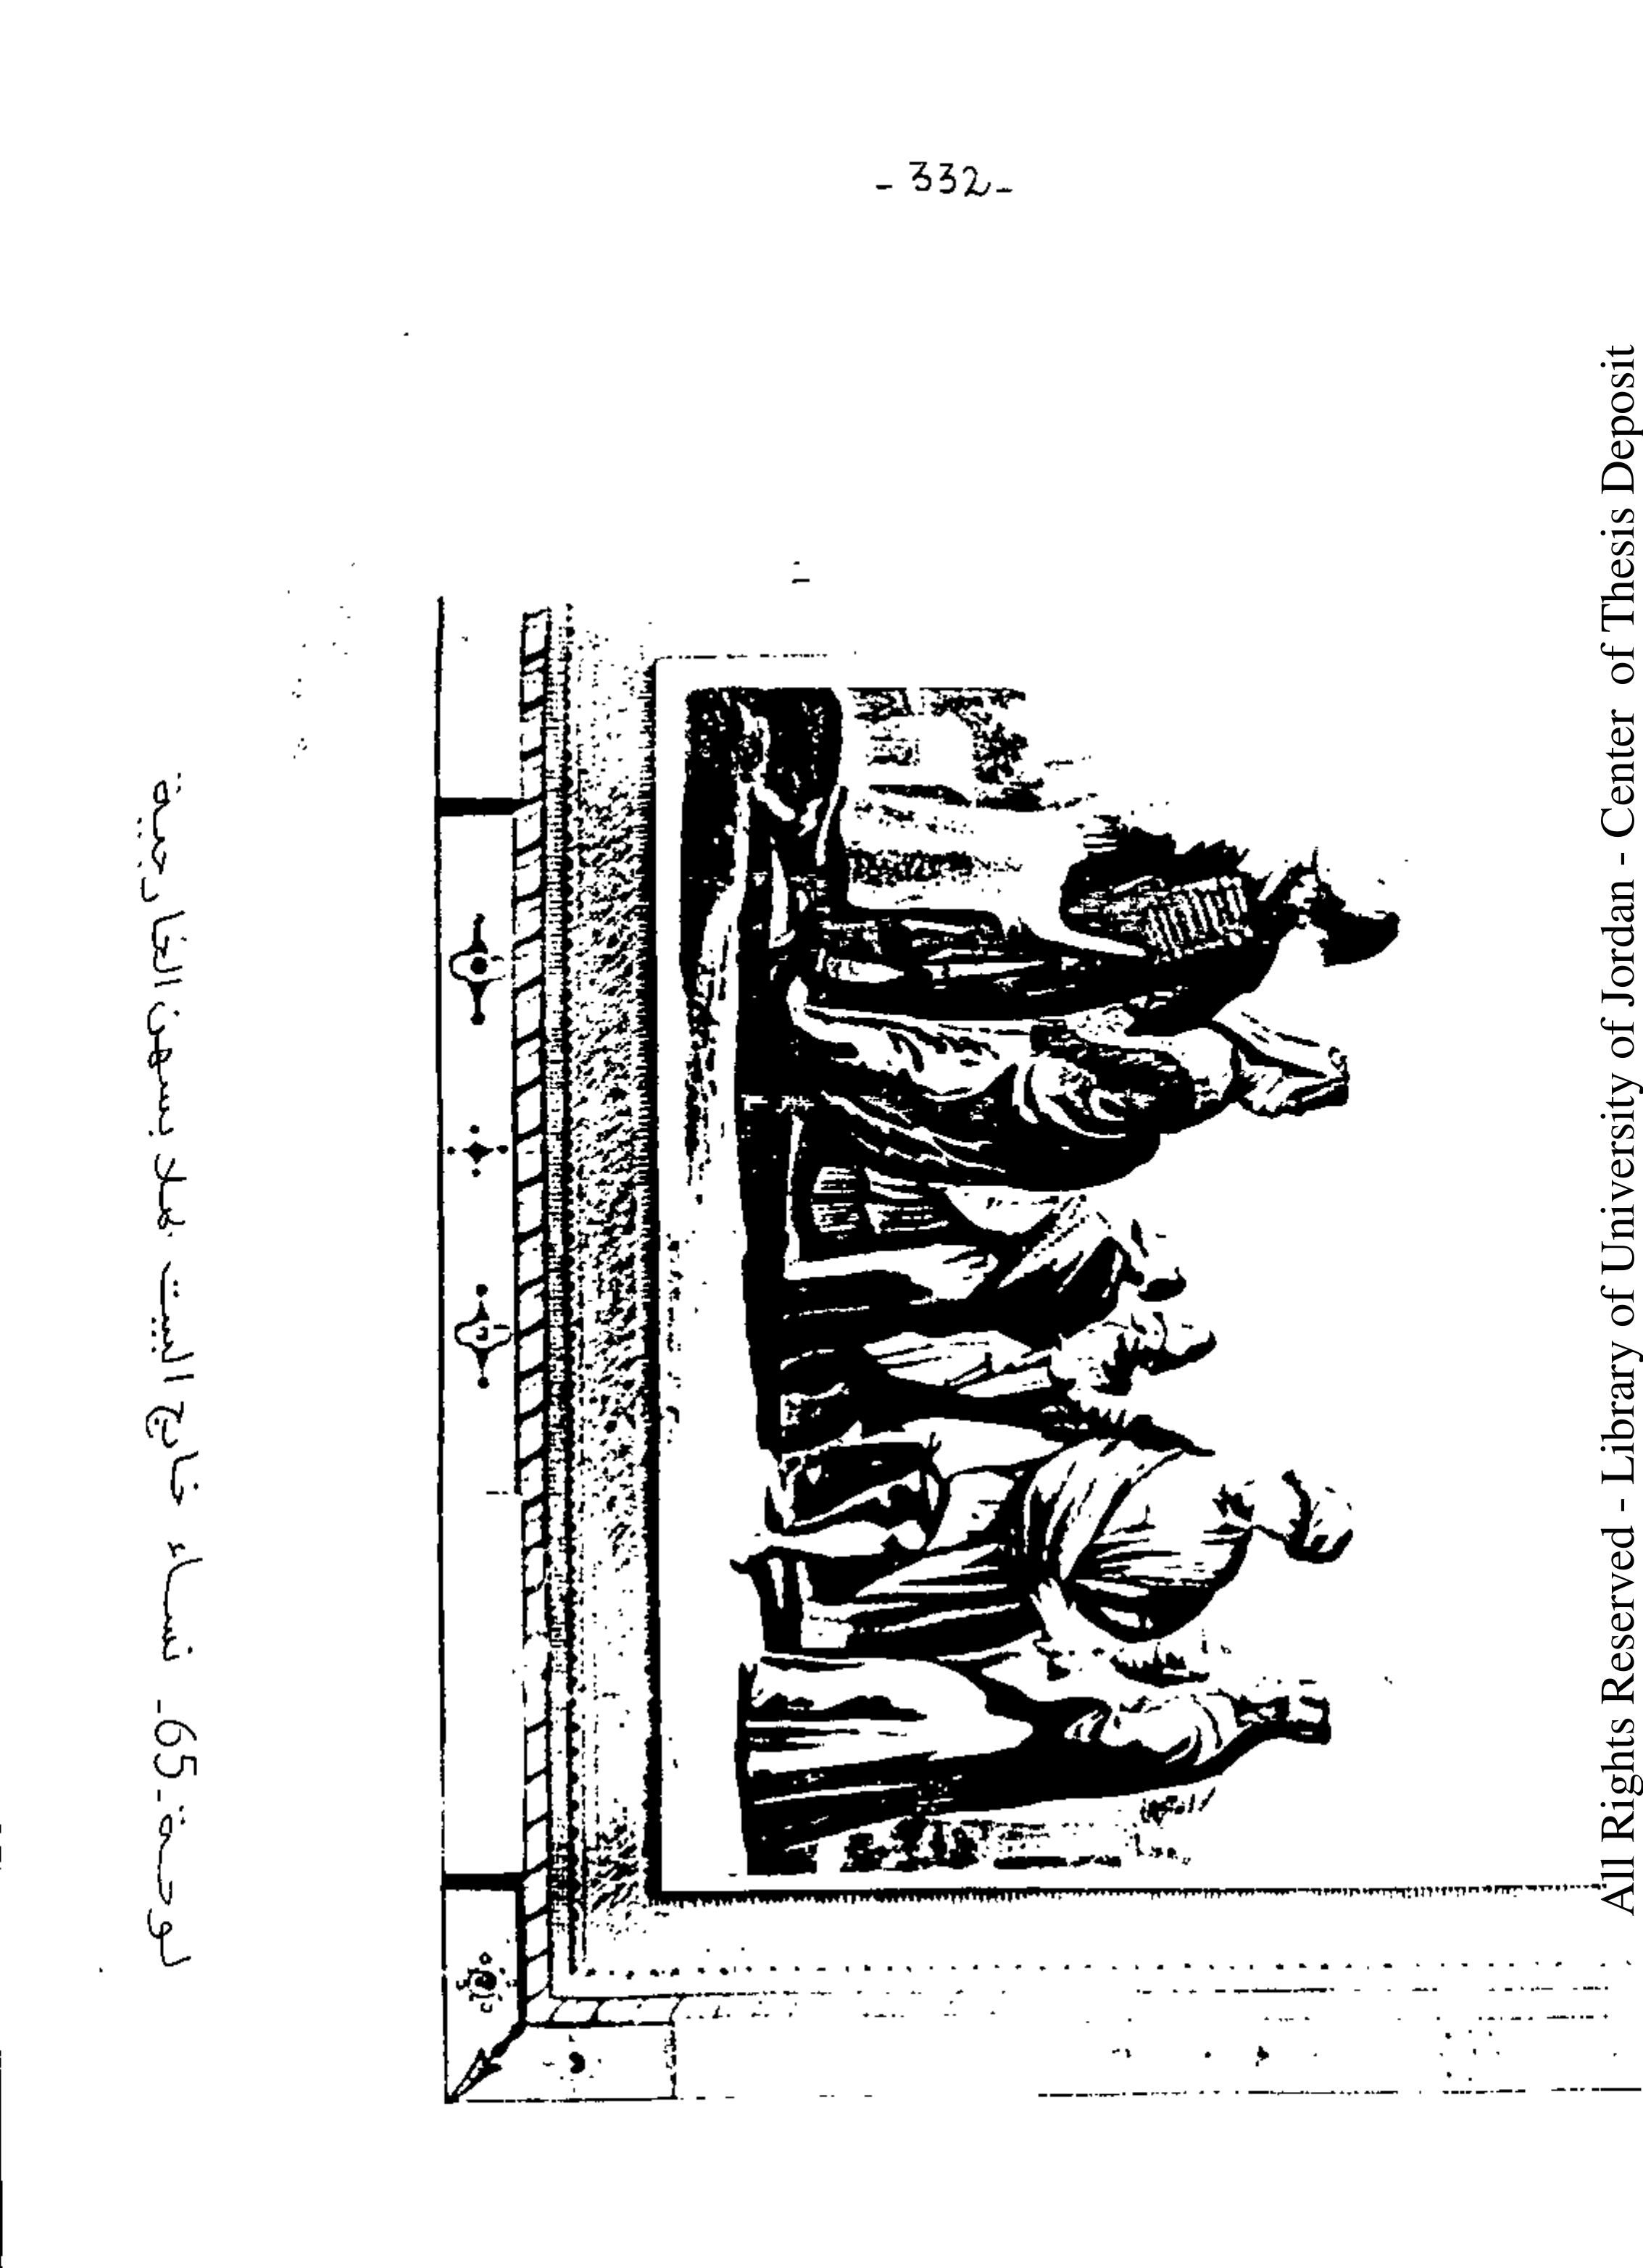 - 332 -
لوحة -65- نساء خارج البيت بملابسهن الخارجية
All Rights Reserved - Library of University of Jordan - Center of Thesis Deposit